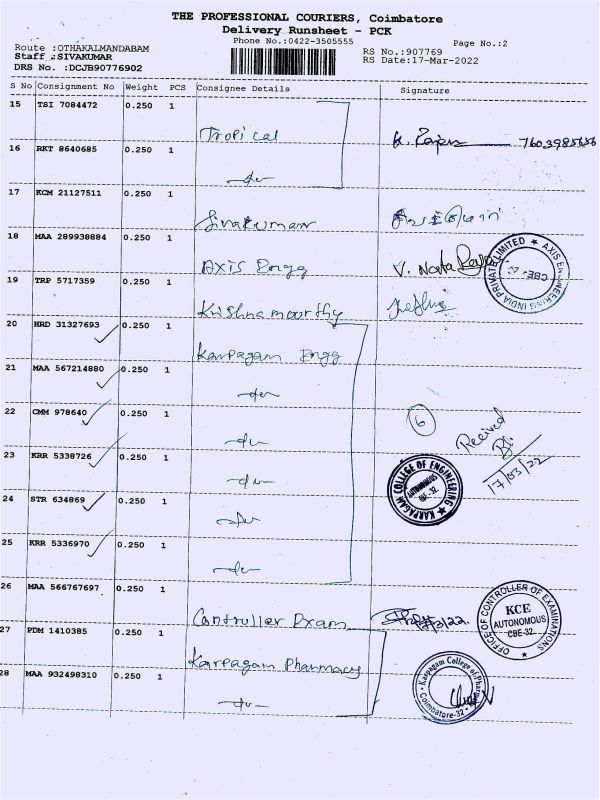 THE PROFESSIONAL COURIERS, Coimbatore
Delivery Runsheet - PCK
Phone No.:0422-3505555
Page No.:2
Route :OTHAKALMANDABAM
Staff :SIVAKUMAR
DRS No. :DCJB90776902
RS No.:907769
RS Date:17-Mar-2022
S No Consignment No Weight PCS Consignee Details Signature
15 TSI 7084472 0.250 1 Tropical
16 RKT 8640685 0.250 1 -do-
17 KCM 21127511 Sivakumar
18 MAA 289938884 0.250 1 Axis Engg V. Nata
AXIS ENGINEERING INDIA PRIVATE LIMITED ★ CBE
19 TRP 5717359 0.250 1 Krishnamoorthy
20 HRD 31327693 0.250 1 Karpagam Engg
21 MAA 567214880 0.250 1 -do-
22 CMM 978640 0.250 1 -do- 6 Received
23 KRR 5338726 0.250 1 -do- 17/03/22
KARPAGAM COLLEGE OF ENGINEERING ★ AUTONOMOUS CBE-32
24 STR 634869 0.250 1 -do-
25 KRR 5336970 0.250 1 -do-
26 MAA 566767697 0.250 1 Controller Exam
OFFICE OF CONTROLLER OF EXAMINATIONS ★ KCE AUTONOMOUS CBE-32
27 PDM 1410385 0.250 1 Karpagam Pharmacy
28 MAA 932498310 0.250 1 -do-
Karpagam College of Pharmacy Coimbatore-32